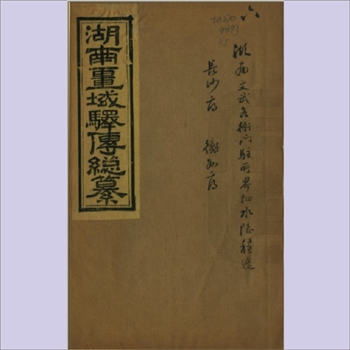 湖南疆域驛傳總纂
六
湖南文武各衙門駐所界址水陸程途
長沙府 衡州府